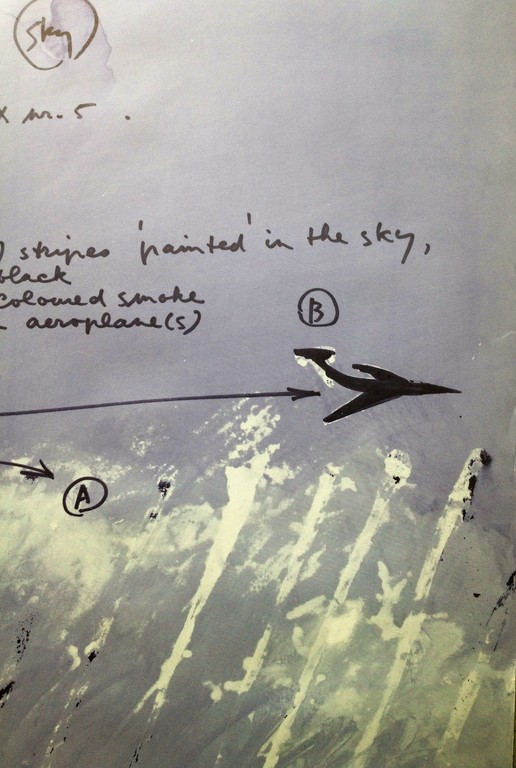 Sky
x nr. 5 .
) stripes 'painted' in the sky,
black
coloured smoke
aeroplane(s)
B
A